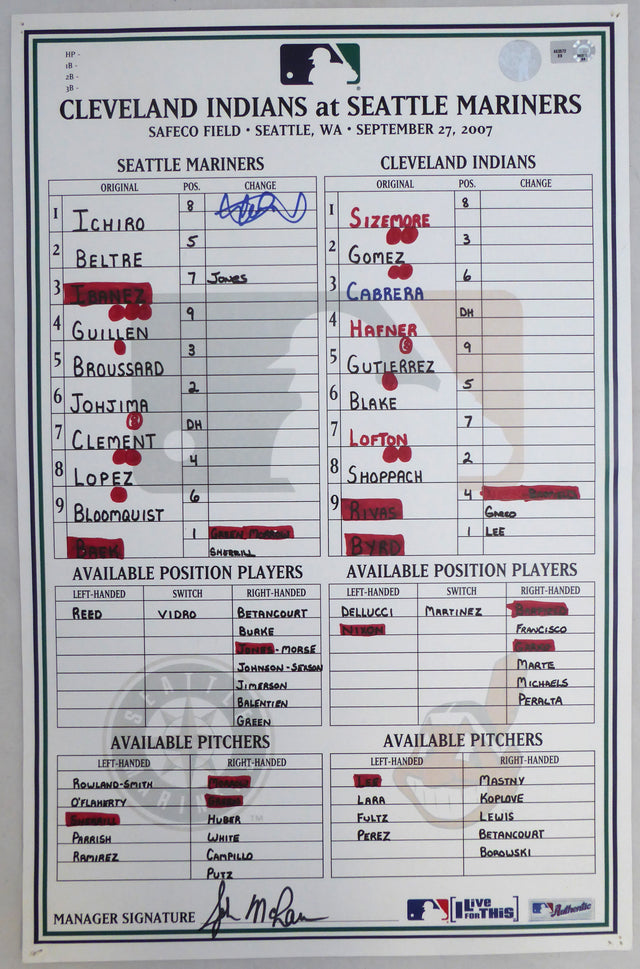 HP -
1B -
2B -
3B -
CLEVELAND INDIANS at SEATTLE MARINERS
SAFECO FIELD • SEATTLE, WA • SEPTEMBER 27, 2007
SEATTLE MARINERS
ORIGINAL POS. CHANGE
1 ICHIRO 8
2 BELTRE 5
3 IBANEZ 7 JONES
4 GUILLEN 9
5 BROUSSARD 3
6 JOHJIMA 2
7 CLEMENT DH
8 LOPEZ 4
9 BLOOMQUIST 6
BAEK 1 GREEN MORROW
SHERRILL
CLEVELAND INDIANS
ORIGINAL POS. CHANGE
1 SIZEMORE 8
2 GOMEZ 3
3 CABRERA 6
4 HAFNER DH
5 GUTIERREZ 9
6 BLAKE 5
7 LOFTON 7
8 SHOPPACH 2
9 RIVAS 4
GARKO
BYRD 1 LEE
AVAILABLE POSITION PLAYERS
LEFT-HANDED SWITCH RIGHT-HANDED
REED VIDRO BETANCOURT
BURKE
JONES - MORSE
JOHNSON - SEASON
JIMERSON
BALENTIEN
GREEN
AVAILABLE POSITION PLAYERS
LEFT-HANDED SWITCH RIGHT-HANDED
DELLUCCI MARTINEZ
NIXON FRANCISCO
GARKO
MARTE
MICHAELS
PERALTA
AVAILABLE PITCHERS
LEFT-HANDED RIGHT-HANDED
ROWLAND-SMITH MORROW
O'FLAHERTY GREEN
SHERRILL HUBER
PARRISH WHITE
RAMIREZ CAMPILLO
PUTZ
AVAILABLE PITCHERS
LEFT-HANDED RIGHT-HANDED
LEE MASTNY
LARA KOPLOVE
FULTZ LEWIS
PEREZ BETANCOURT
BOROWSKI
MANAGER SIGNATURE John McLaren
I Live FOR THIS!
Authentic